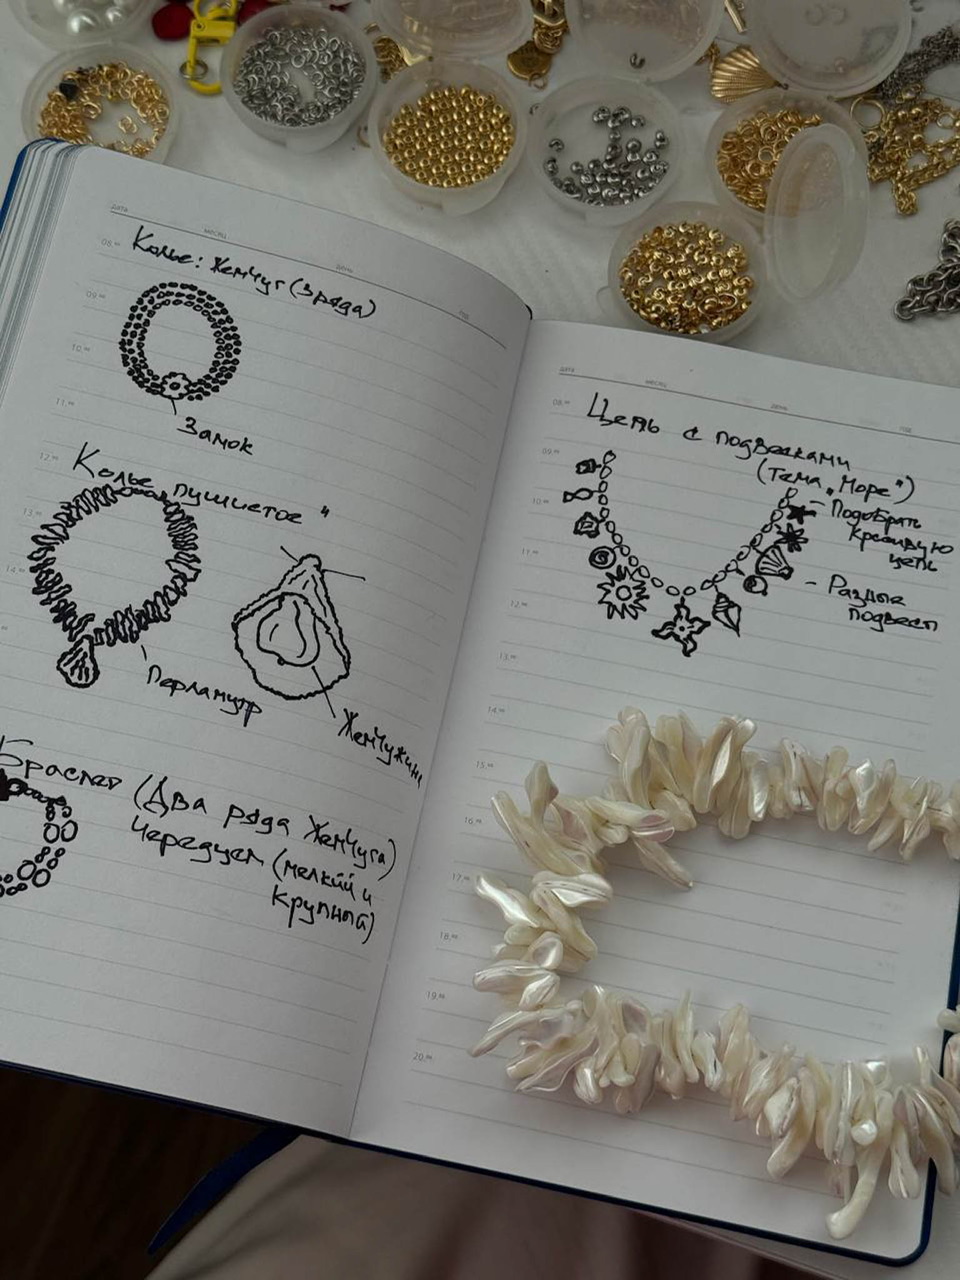 дата
месяц
день
год
08.00
Колье: Жемчуг (3 ряда)
09.00
10.00
11.00
Замок
12.00
Колье „пушистое"
13.00
14.00
Перламутр
Жемчужина
Браслет (Два ряда Жемчуга)
Чередуем (мелкий и
крупный)
дата
месяц
день
год
08.00
Цепь с подвесками
(тема „Море")
09.00
10.00
- Подобрать
красивую
цепь
11.00
- Разные
12.00
13.00
14.00
15.00
16.00
17.00
18.00
19.00
20.00